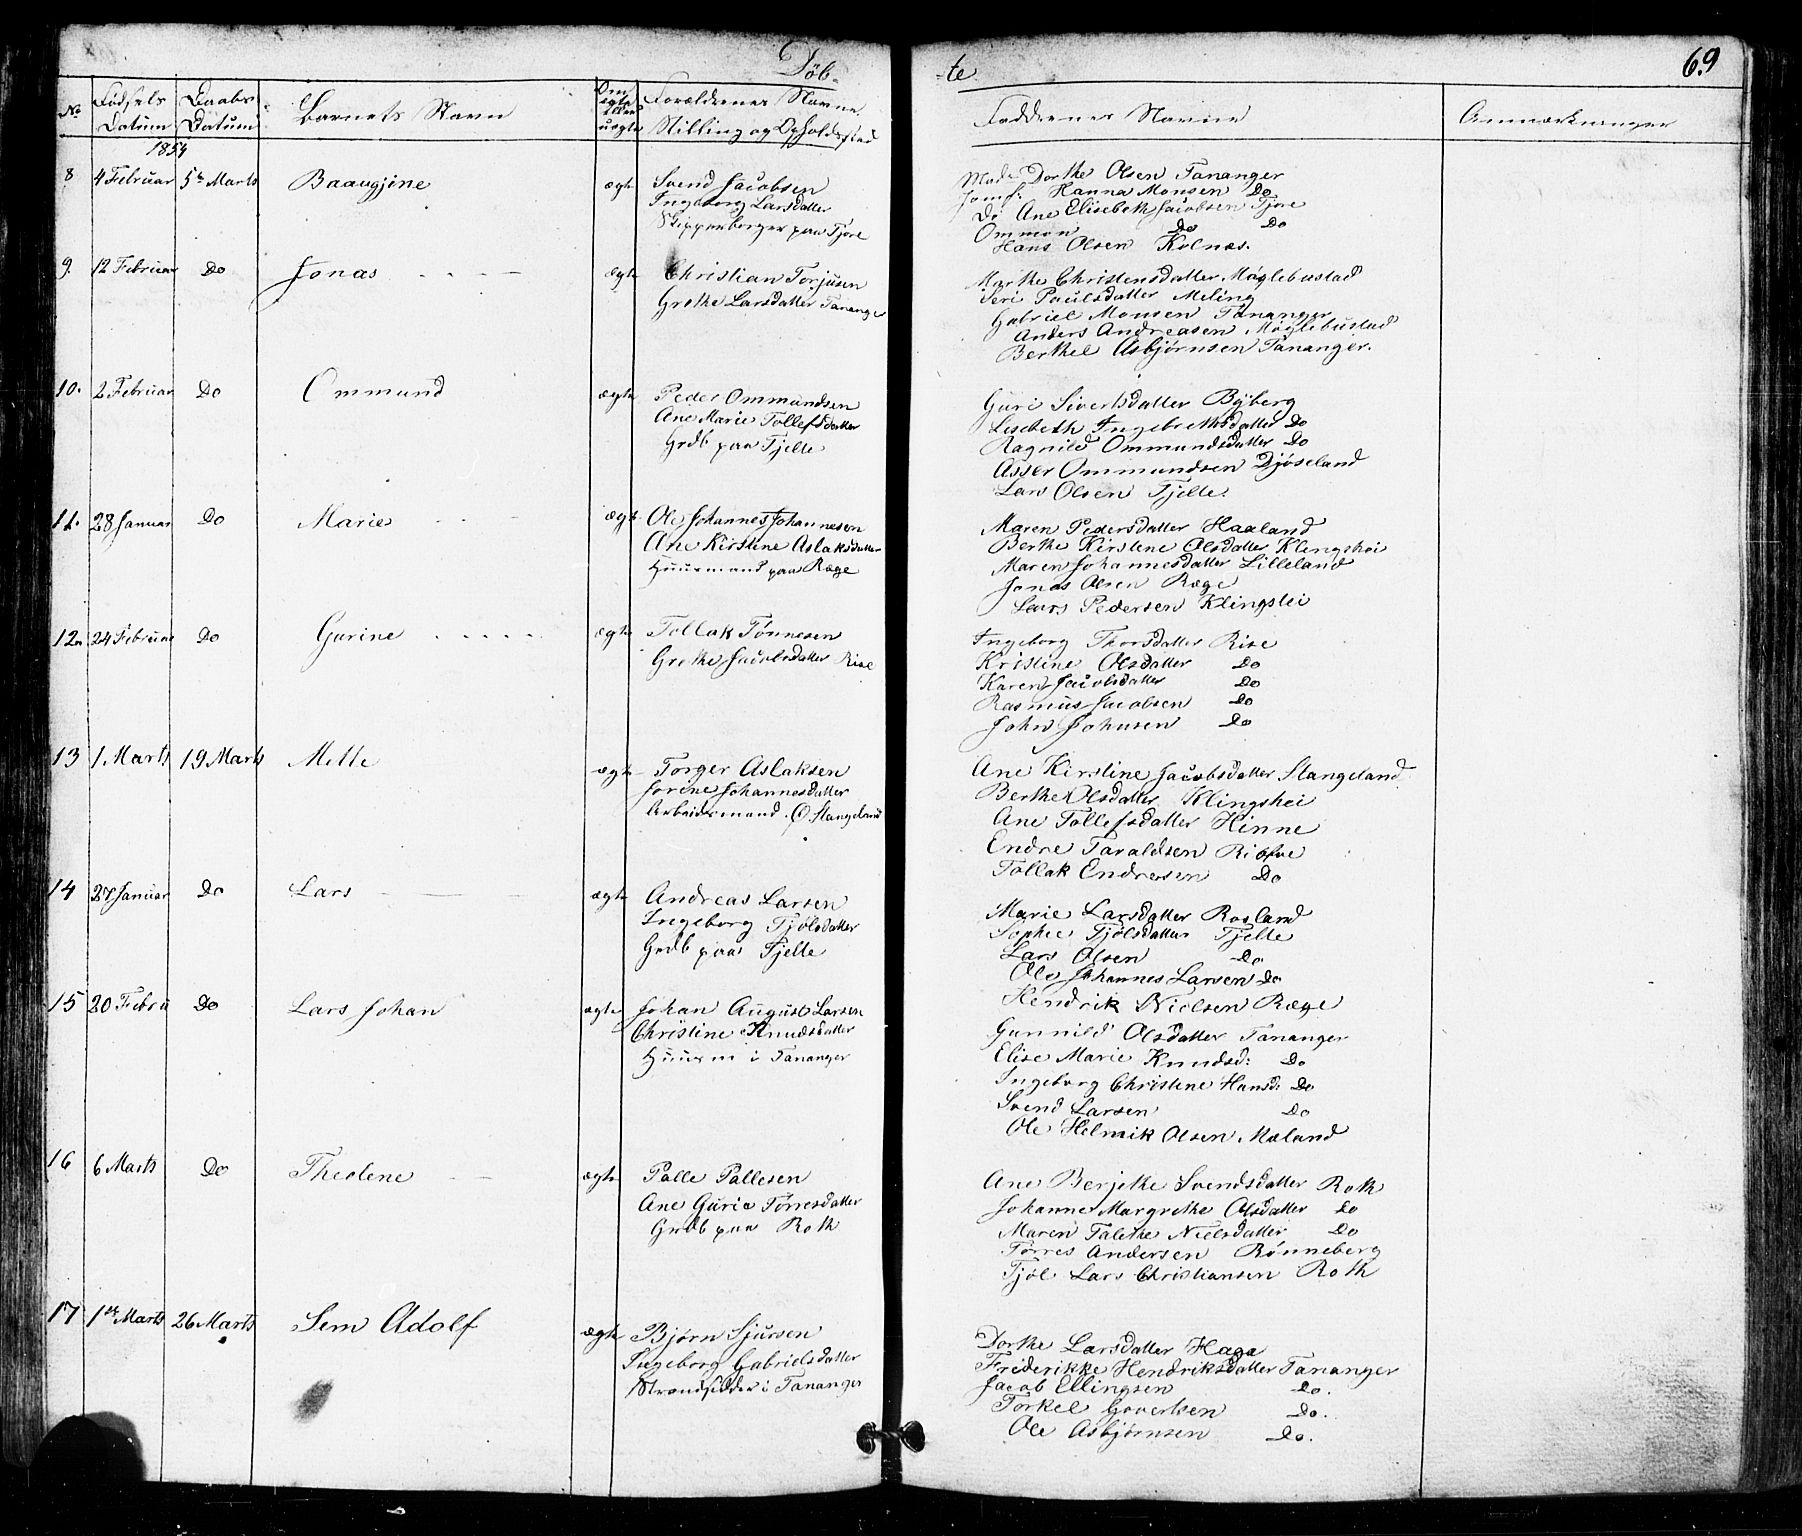 Døb-
-te
69
No
Fødsels Datum
Daabs Datum
Barnets Navn
Om ægte eller uægte
Forældrenes Navne, Stilling og Opholdssted
Faddrenes Navne
Anmærkninger
1854
8 4 Februar 5te Marts Baaugjine ægte
Svend Jacobsen
Ingeborg Larsdatter
Skippenborger paa Tjore
Mad: Dorthe Olsen Tananger
Jomf: Hanna Monsen Do
Do Ane Elisebeth Jacobsen Tjore
Ommon Do Do
Hans Olsen Kolnæs.
9. 12 Februar Do Jonas ægte
Christian Torjusen
Grethe Larsdatter Tananger
Marthe Christensdatter Møglebustad
Seri Paulsdatter Meling
Gabriel Monsen Tananger
Anders Andreasen Møglebustad
Berthel Asbjørnsen Tananger.
10. 2 Februar Do Ommund ægte
Peder Ommundsen
Ane Marie Tollefsdatter
Grdb paa Tjelte
Guri Sivertsdatter Byberg
Lisebeth Ingebrethsdatter Do
Ragnild Ommundsdatter Do
Asser Ommundsen Djøseland
Lars Olsen Tjelte.
11. 28 Januar Do Marie ægt
Ole Johannes Johannesen
Ane Kirstine Aslaksdatter
Huusmand paa Ræge
Maren Pedersdatter Haaland
Berthe Kirstine Olsdatter Klingshei
Maren Johannesdatter Lilleland
Jonas Olsen Ræge
Lars Pedersen Klingshei
12. 24 Februar Do Gurine ægte
Tollak Tønnesen
Grethe Jacobsdatter Rise
Ingeborg Thorsdatter Rise
Kristine Olsdatter Do
Karen Jacobsdatter Do
Rasmus Jacobsen Do
John Johnsen Do
13 1 Marts 19 Marts Mette ægte
Torger Aslaksen
Sorine Johannesdatter
Arbeidsmand. O. Stangeland
Ane Kirstine Jacobsdatter Stangeland.
Berthe Olsdatter Klingshei
Ane Tollefsdatter Hinne
Endre Taraldsen
Tollak Endresen Do
14 27 Januar Do Lars ægte
Andreas Larsen
Ingeborg Tjølsdatter
Grdb paa Tjelte
Marie Larsdatter Rosland
Sophie Tjølsdatter Tjelte
Lars Olsen Do
Ole Johannes Larsen Do
Hendrik Nielsen Ræge
15 20 Febru Do Lars Johan ægte
Johan August Larsen
Christine Knudsdatter
Huusm i Tananger
Gunnild Olsdatter Tananger
Elise Marie Knudsd: Do
Ingeborg Christine Hansd: Do
Svend Larsen Do
Ole Helmik Olsen Mæland
16 6 Marts Do Theolene ægte
Palle Pallesen
Ane Gurie Tørresdatter
Grdb paa Roth
Ane Berjethe Svendsdatter Roth
Johanne Margrethe Olsdatter Do
Maren Talethe Nielsdatter Do
Tørres Andersen Rønneberg
Tjøl Lars Christiansen Roth
17 1ste Marts 26 Marts Sem Adolf ægte
Bjørn Sjursen
Ingeborg Gabrielsdatter
Strandsidder i Tananger
Dorthe Larsdatter Haga
Friderikke Hendriksdatter Tananger
Jacob Ellingsen Do.
Torkel Govertsen Do.
Ole Asbjørnsen Do.